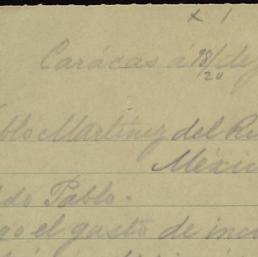 x 1
Carácas á 18/20 de
blo Martínez del R
México
do Pablo.
go el gusto de inc